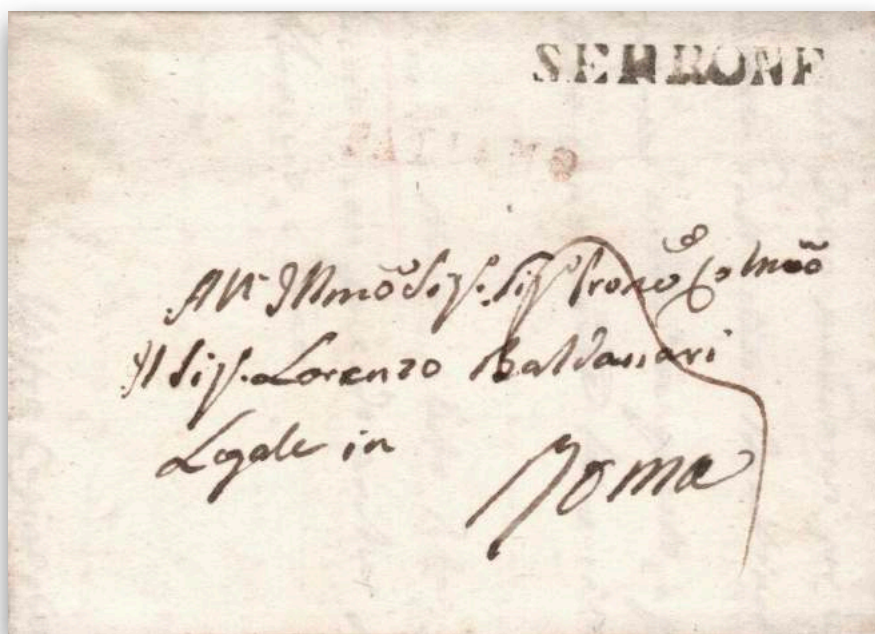 SERRONE
All' Illmõ Sigr. Sigr Prone Colmõ
Il Sigr. Lorenzo Baldassari
Legale in
Roma